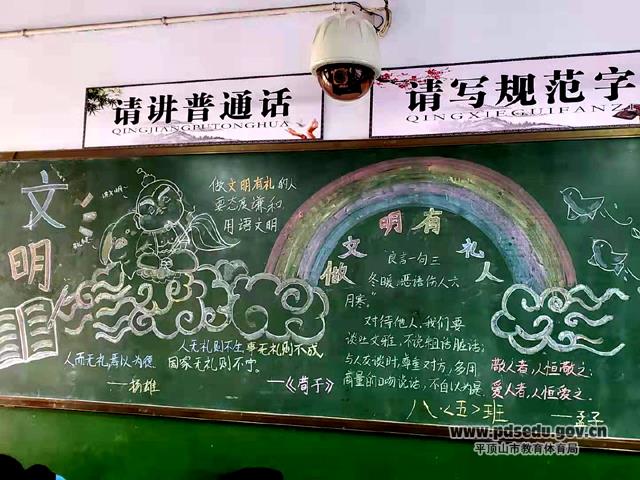 请讲普通话
QINGJIANGPUTONGHUA
请写规范字
QINGXIEGUIFANZ
文明
做文明有礼的人
要态度谦和
用语文明
做文明有礼人
良言一句三
冬暖,恶语伤人六
月寒."
对待他人,我们要
谈吐文雅,不说粗话脏话;
与人交谈时,尊重对方,多用
商量的口吻说话,不自以为是.
人而无礼,焉以为德
——扬雄
人无礼则不生,事无礼则不成,
国家无礼则不宁。
——《荀子》
敬人者,人恒敬之;
爱人者,人恒爱之.
——孟子
八.<五>班
www.pdsedu.gov.cn
平顶山市教育体育局